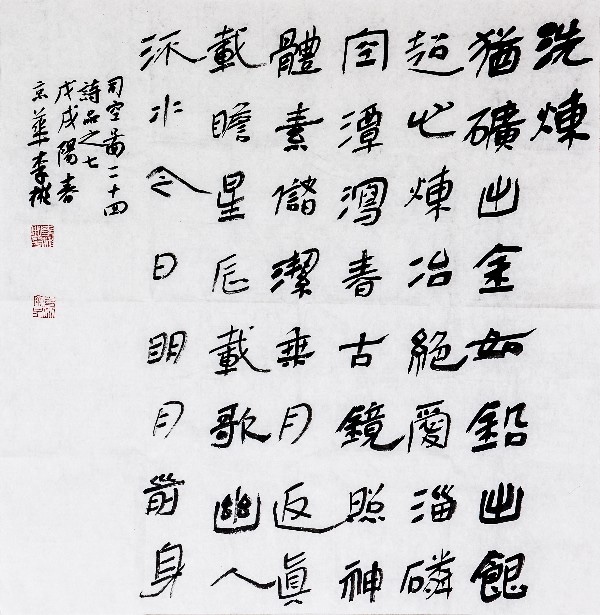 洗煉
猶礦出金如鉛出銀
超心煉冶絕愛淄磷
空潭瀉春古鏡照神
體素儲潔乘月返眞
載瞻星辰載歌幽人
流水今日明月前身
司空圖二十四
詩品之七
戊戌陽春
京華李